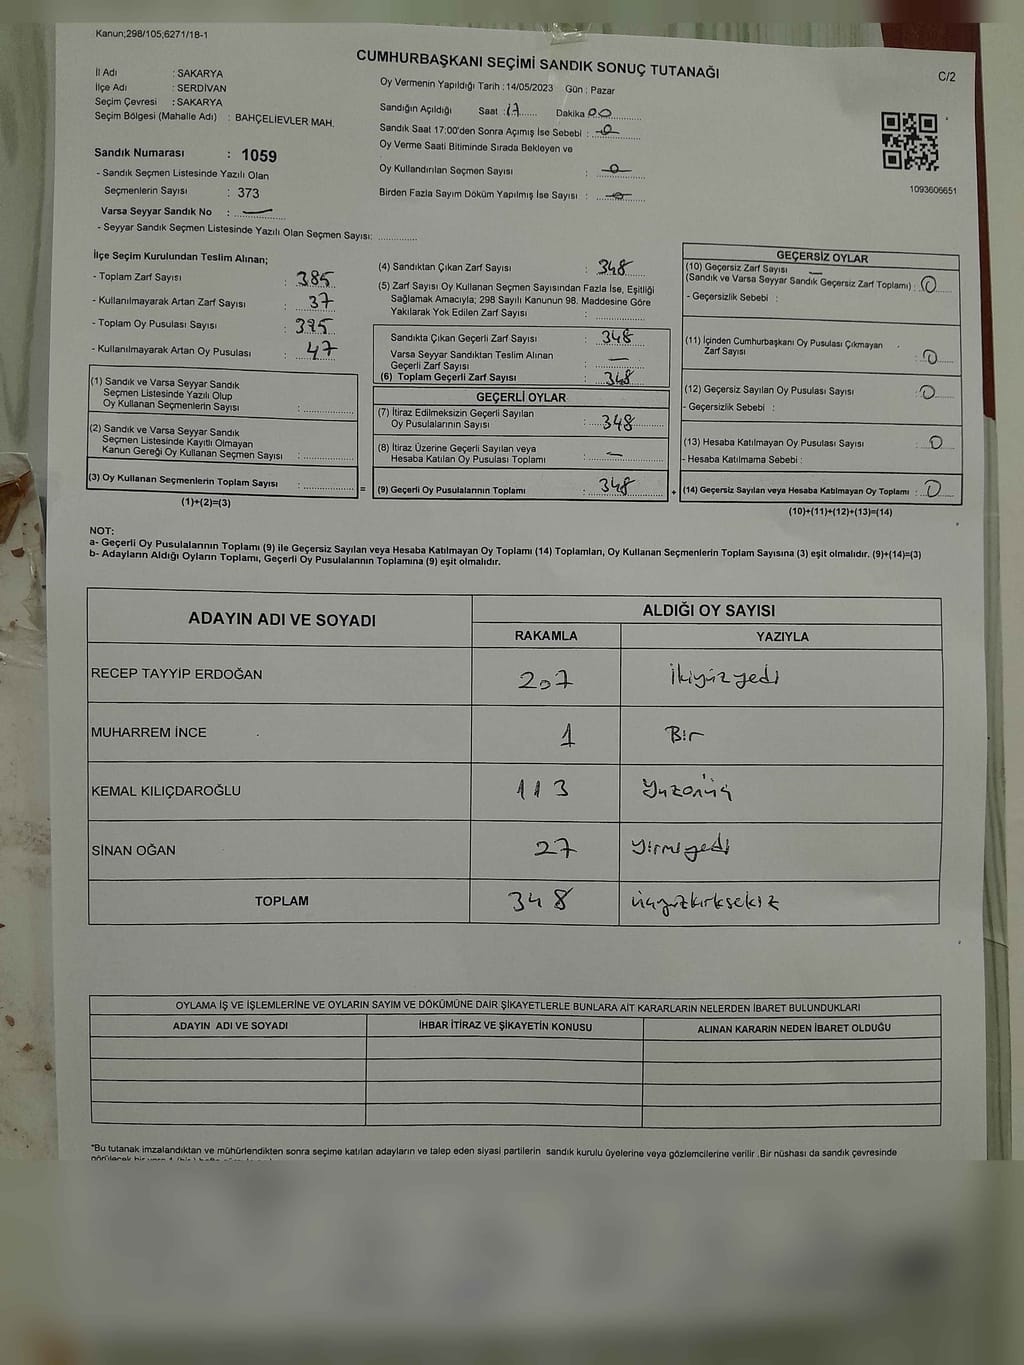 Kanun;298/105;6271/18-1
CUMHURBAŞKANI SEÇİMİ SANDIK SONUÇ TUTANAĞI
C/2
İl Adı : SAKARYA
İlçe Adı : SERDİVAN
Seçim Çevresi : SAKARYA
Seçim Bölgesi (Mahalle Adı) : BAHÇELİEVLER MAH.
Sandık Numarası : 1059
- Sandık Seçmen Listesinde Yazılı Olan
Seçmenlerin Sayısı : 373
Varsa Seyyar Sandık No : —
- Seyyar Sandık Seçmen Listesinde Yazılı Olan Seçmen Sayısı: ..............
Oy Vermenin Yapıldığı Tarih : 14/05/2023 Gün : Pazar
Sandığın Açıldığı Saat : 17 Dakika 00
Sandık Saat 17:00'den Sonra Açımış İse Sebebi : 0
Oy Verme Saati Bitiminde Sırada Bekleyen ve
Oy Kullandırılan Seçmen Sayısı : 0
Birden Fazla Sayım Döküm Yapılmış İse Sayısı : 0
1093606651
İlçe Seçim Kurulundan Teslim Alınan;
- Toplam Zarf Sayısı : 385
- Kullanılmayarak Artan Zarf Sayısı : 37
- Toplam Oy Pusulası Sayısı : 395
- Kullanılmayarak Artan Oy Pusulası : 47
(1) Sandık ve Varsa Seyyar Sandık
Seçmen Listesinde Yazılı Olup
Oy Kullanan Seçmenlerin Sayısı : ..............
(2) Sandık ve Varsa Seyyar Sandık
Seçmen Listesinde Kayıtlı Olmayan
Kanun Gereği Oy Kullanan Seçmen Sayısı : ..............
(3) Oy Kullanan Seçmenlerin Toplam Sayısı : .............. =
(1)+(2)=(3)
(4) Sandıktan Çıkan Zarf Sayısı : 348
(5) Zarf Sayısı Oy Kullanan Seçmen Sayısından Fazla İse, Eşitliği
Sağlamak Amacıyla; 298 Sayılı Kanunun 98. Maddesine Göre
Yakılarak Yok Edilen Zarf Sayısı : ..............
Sandıkta Çıkan Geçerli Zarf Sayısı : 348
Varsa Seyyar Sandıktan Teslim Alınan
Geçerli Zarf Sayısı : —
(6) Toplam Geçerli Zarf Sayısı : 348
GEÇERLİ OYLAR
(7) İtiraz Edilmeksizin Geçerli Sayılan
Oy Pusulalarının Sayısı : 348
(8) İtiraz Üzerine Geçerli Sayılan veya
Hesaba Katılan Oy Pusulası Toplamı : —
(9) Geçerli Oy Pusulalarının Toplamı : 348 +
GEÇERSİZ OYLAR
(10) Geçersiz Zarf Sayısı —
(Sandık ve Varsa Seyyar Sandık Geçersiz Zarf Toplamı) : 0
- Geçersizlik Sebebi :
(11) İçinden Cumhurbaşkanı Oy Pusulası Çıkmayan
Zarf Sayısı : 0
(12) Geçersiz Sayılan Oy Pusulası Sayısı : 0
- Geçersizlik Sebebi :
(13) Hesaba Katılmayan Oy Pusulası Sayısı : 0
- Hesaba Katılmama Sebebi :
(14) Geçersiz Sayılan veya Hesaba Katılmayan Oy Toplamı : 0
(10)+(11)+(12)+(13)=(14)
NOT:
a- Geçerli Oy Pusulalarının Toplamı (9) ile Geçersiz Sayılan veya Hesaba Katılmayan Oy Toplamı (14) Toplamları, Oy Kullanan Seçmenlerin Toplam Sayısına (3) eşit olmalıdır. (9)+(14)=(3)
b- Adayların Aldığı Oyların Toplamı, Geçerli Oy Pusulalarının Toplamına (9) eşit olmalıdır.
ADAYIN ADI VE SOYADI ALDIĞI OY SAYISI
RAKAMLA YAZIYLA
RECEP TAYYİP ERDOĞAN 207 İkiyüzyedi
MUHARREM İNCE 1 Bir
KEMAL KILIÇDAROĞLU 113 Yüzonüç
SİNAN OĞAN 27 Yirmiyedi
TOPLAM 348 üçyüzkırksekiz
OYLAMA İŞ VE İŞLEMLERİNE VE OYLARIN SAYIM VE DÖKÜMÜNE DAİR ŞİKAYETLERLE BUNLARA AİT KARARLARIN NELERDEN İBARET BULUNDUKLARI
ADAYIN ADI VE SOYADI İHBAR İTİRAZ VE ŞİKAYETİN KONUSU ALINAN KARARIN NEDEN İBARET OLDUĞU
"Bu tutanak imzalandıktan ve mühürlendikten sonra seçime katılan adayların ve talep eden siyasi partilerin sandık kurulu üyelerine veya gözlemcilerine verilir .Bir nüshası da sandık çevresinde